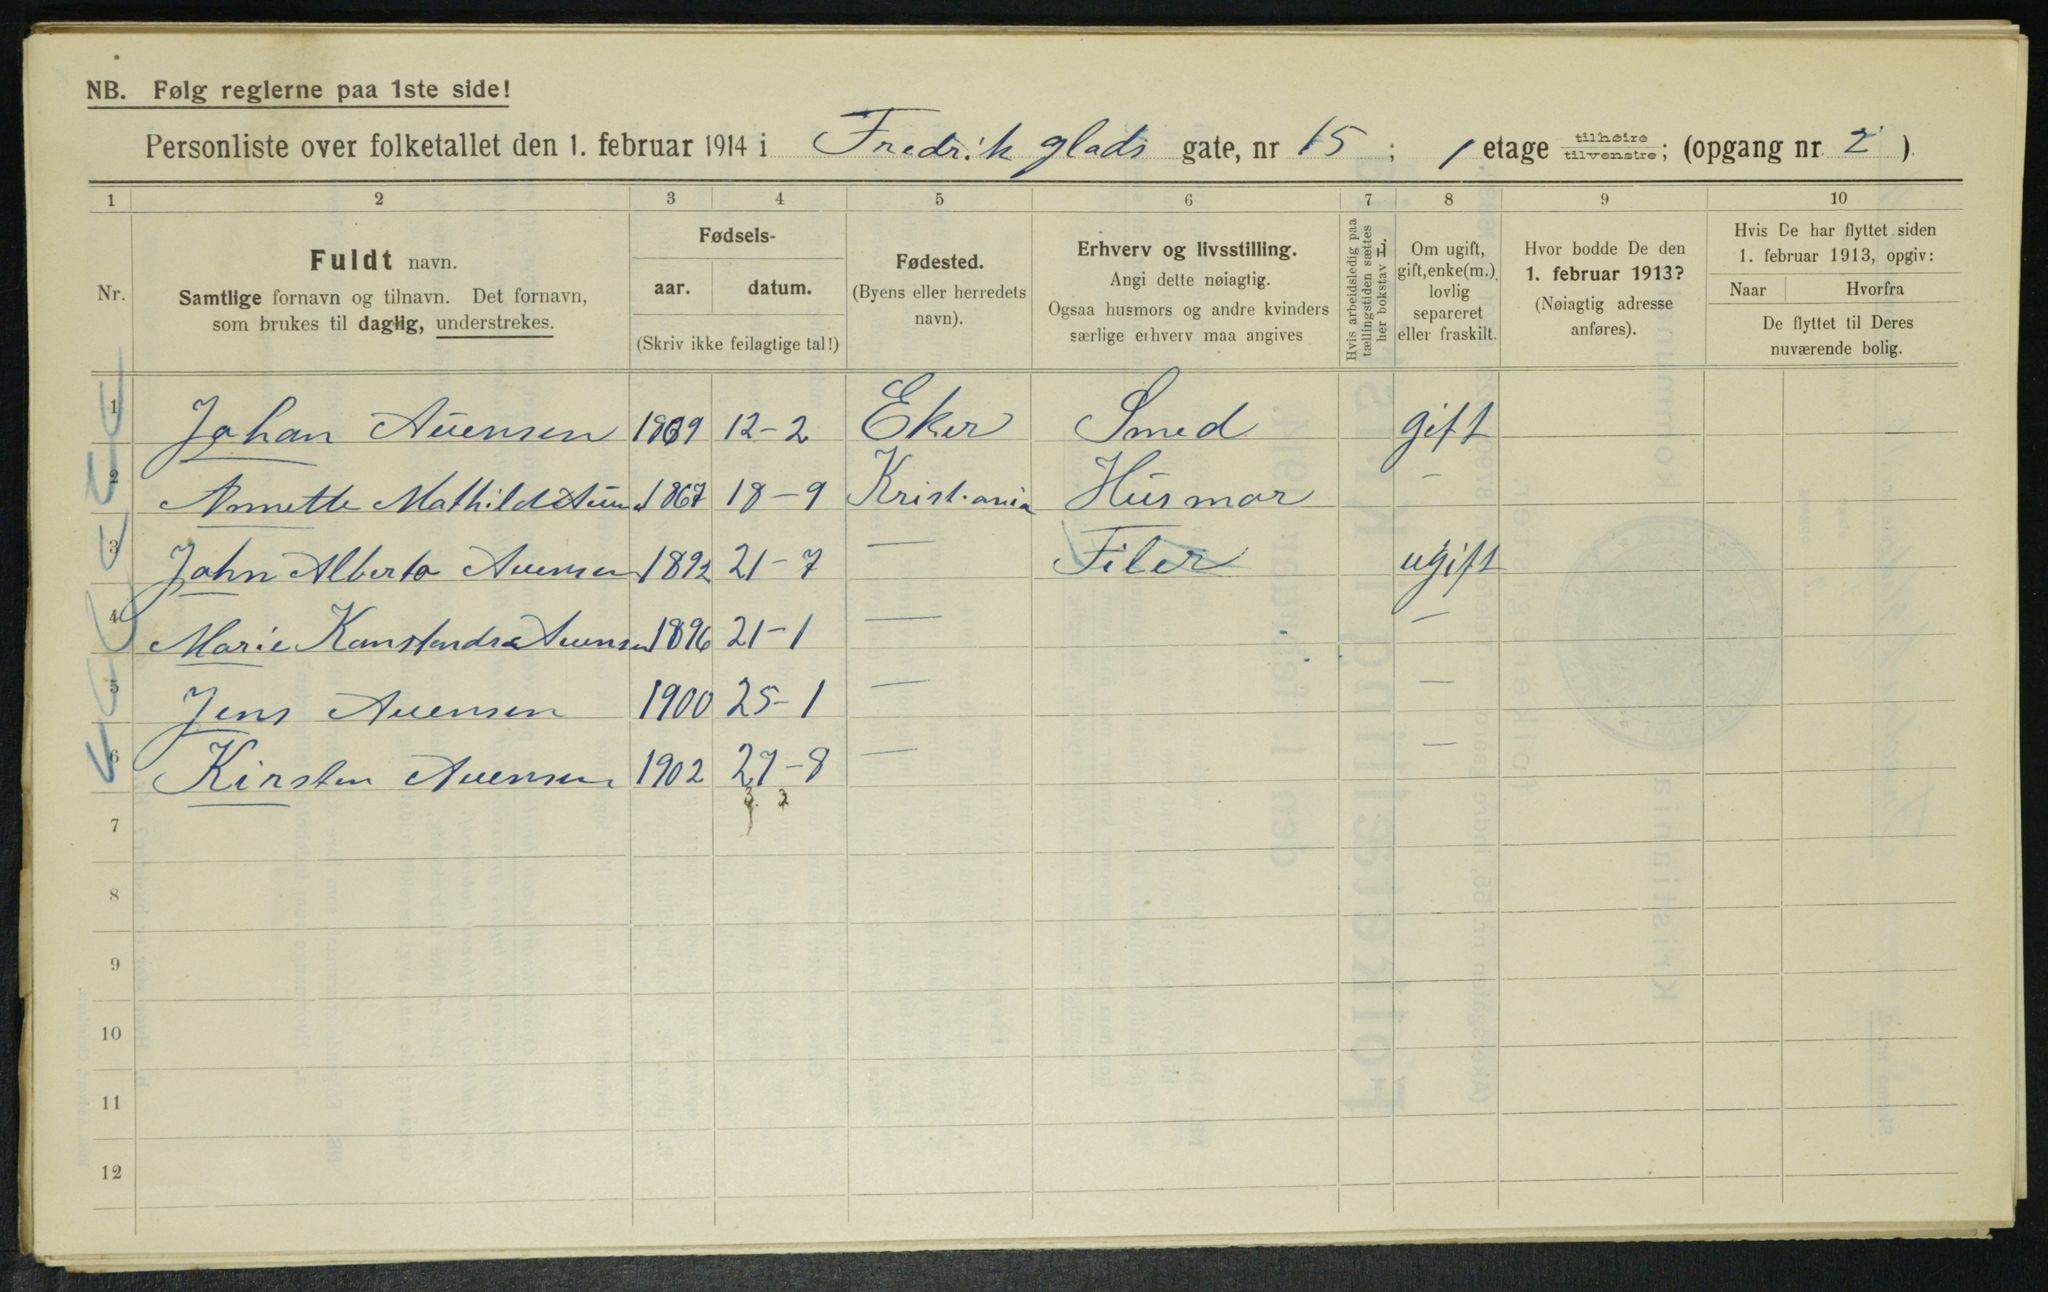 NB. Følg reglerne paa 1ste side!
Personliste over folketallet den 1. februar 1914 i Fredrik glads gate, nr 15 ; 1 etage tilhøire tilvenstre; (opgang nr 2 ).
1 2 3 4 5 6 7 8 9 10
Nr.
Fuldt navn.
Samtlige fornavn og tilnavn. Det fornavn,
som brukes til daglig, understrekes.
Fødsels-
aar. datum.
(Skriv ikke feilagtige tal!)
Fødested.
(Byens eller herredets
navn).
Erhverv og livsstilling.
Angi dette nøiagtig.
Ogsaa husmors og andre kvinders
særlige erhverv maa angives
Hvis arbeidsledig paa
tællingstiden sættes
her bokstav L.
Om ugift,
gift, enke(m.),
lovlig
separeret
eller fraskilt.
Hvor bodde De den
1. februar 1913?
(Nøiagtig adresse
anføres).
Hvis De har flyttet siden
1. februar 1913, opgiv:
Naar Hvorfra
De flyttet til Deres
nuværende bolig.
1 Johan Auensen 1869 12-2 Eker Smed gift
2 Annette Mathilde 1867 18-9 Kristiania Husmor —
3 John Alberto Auensen 1892 21-7 — Filer ugift
4 Marie Konstandse Auensen 1896 21-1 — —
5 Jens Auensen 1900 25-1 — —
6 Kirsten Auensen 1902 27-8 — —
3. 3
7
8
9
10
11
12